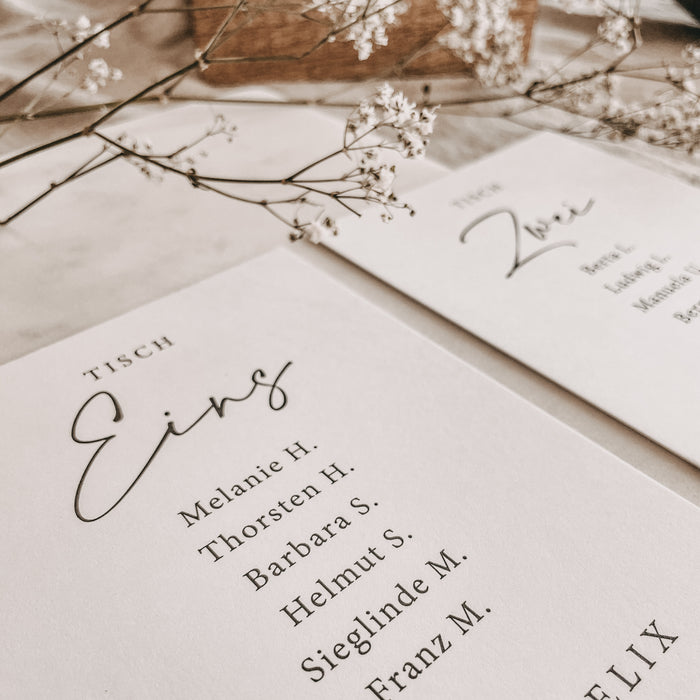 TISCH
Eins
Melanie H.
Thorsten H.
Barbara S.
Helmut S.
Sieglinde M.
Franz M.
ELIX
TISCH
Zwei
Berta L.
Ludwig L.
Manuela